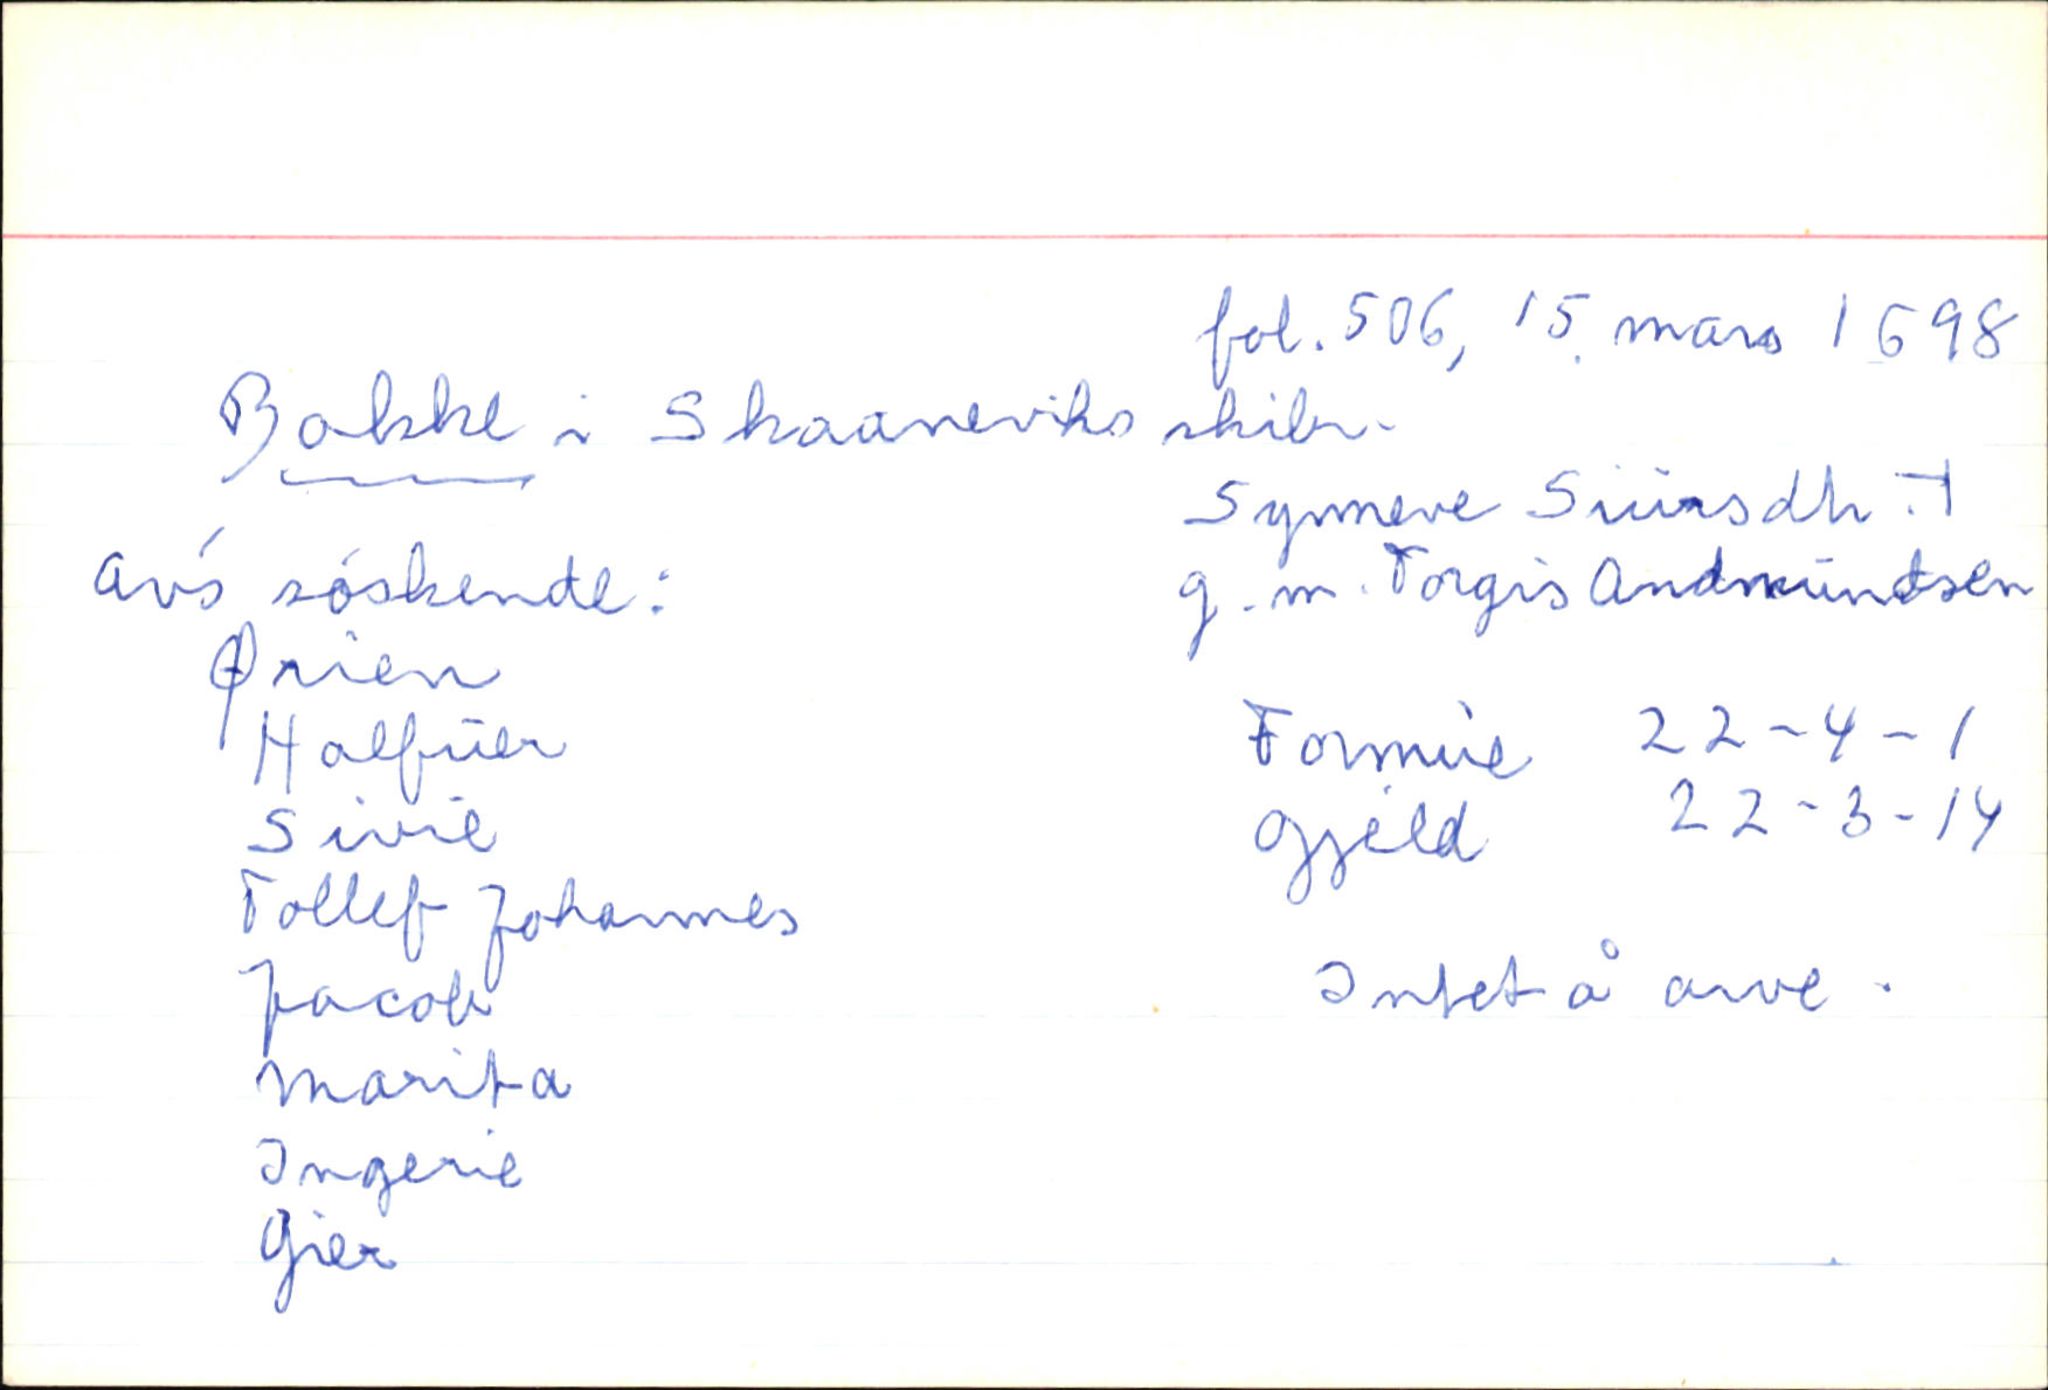 fol. 506, 15. mars 1698
Bakke i Skaaneviks skibr.
Synneve Siürsdtr. †
g.m. Torgis Andmündsen
avs søskende:
Ørien
Halfüer
Sivie
Tollef Johannes
Jacob
Marita
Ingerie
Gier
Formüe 22-4-1
Gjeld 22-3-14
Intet å arve.